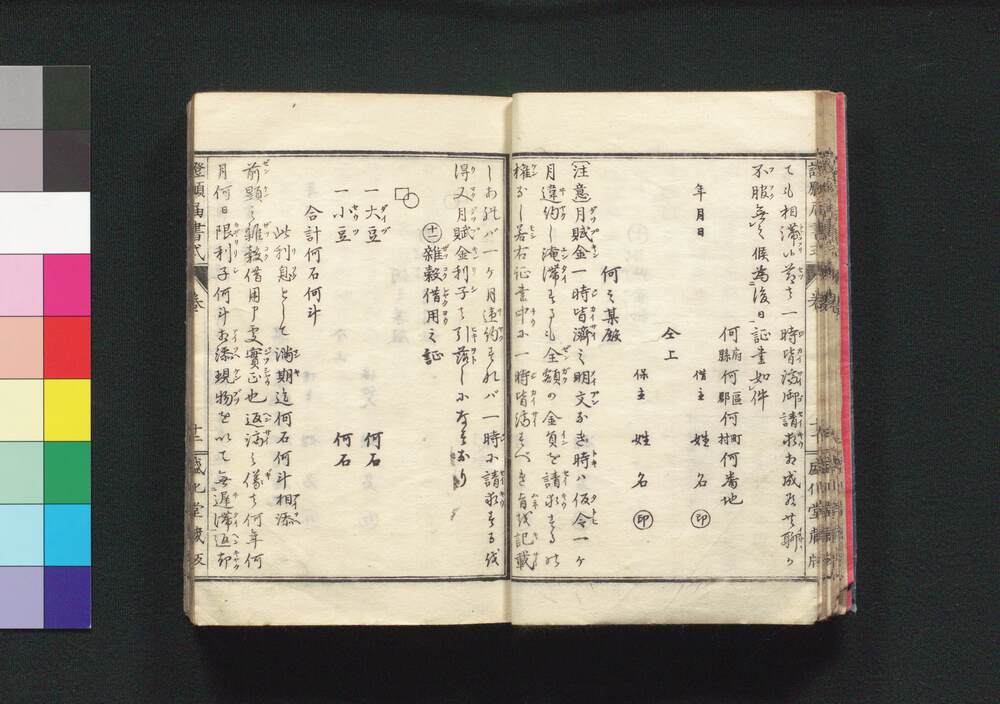 ても相滞候節ハ一時皆済御請求相成候共聊カ
不服無之候為後日証書如件
何府縣何區郡何町村何番地
年月日 借主 姓名 ㊞
仝上 保主 姓名 ㊞
何之某殿
〔注意〕月賦金一時皆濟之明文なき時ハ仮令一ヶ
月違約し淹滞するも全額の金員を請求するの
權なし若右証書中に一時皆済すべき旨を記載
しあれバ一ヶ月違約すれバ一時に請求するを
得又月賦金利子ハ引落しになすなり
㊉二雜穀借用之証
一大豆 何石
一小豆 何石
合計何石何斗
此利息として満期迄何石何斗相添
前顕之雜穀借用申処實正也返済之儀ハ何年何
月何日限利子何斗相添現物を以て無遅滞返却
證願届書式 巻 十二 盛化堂蔵板